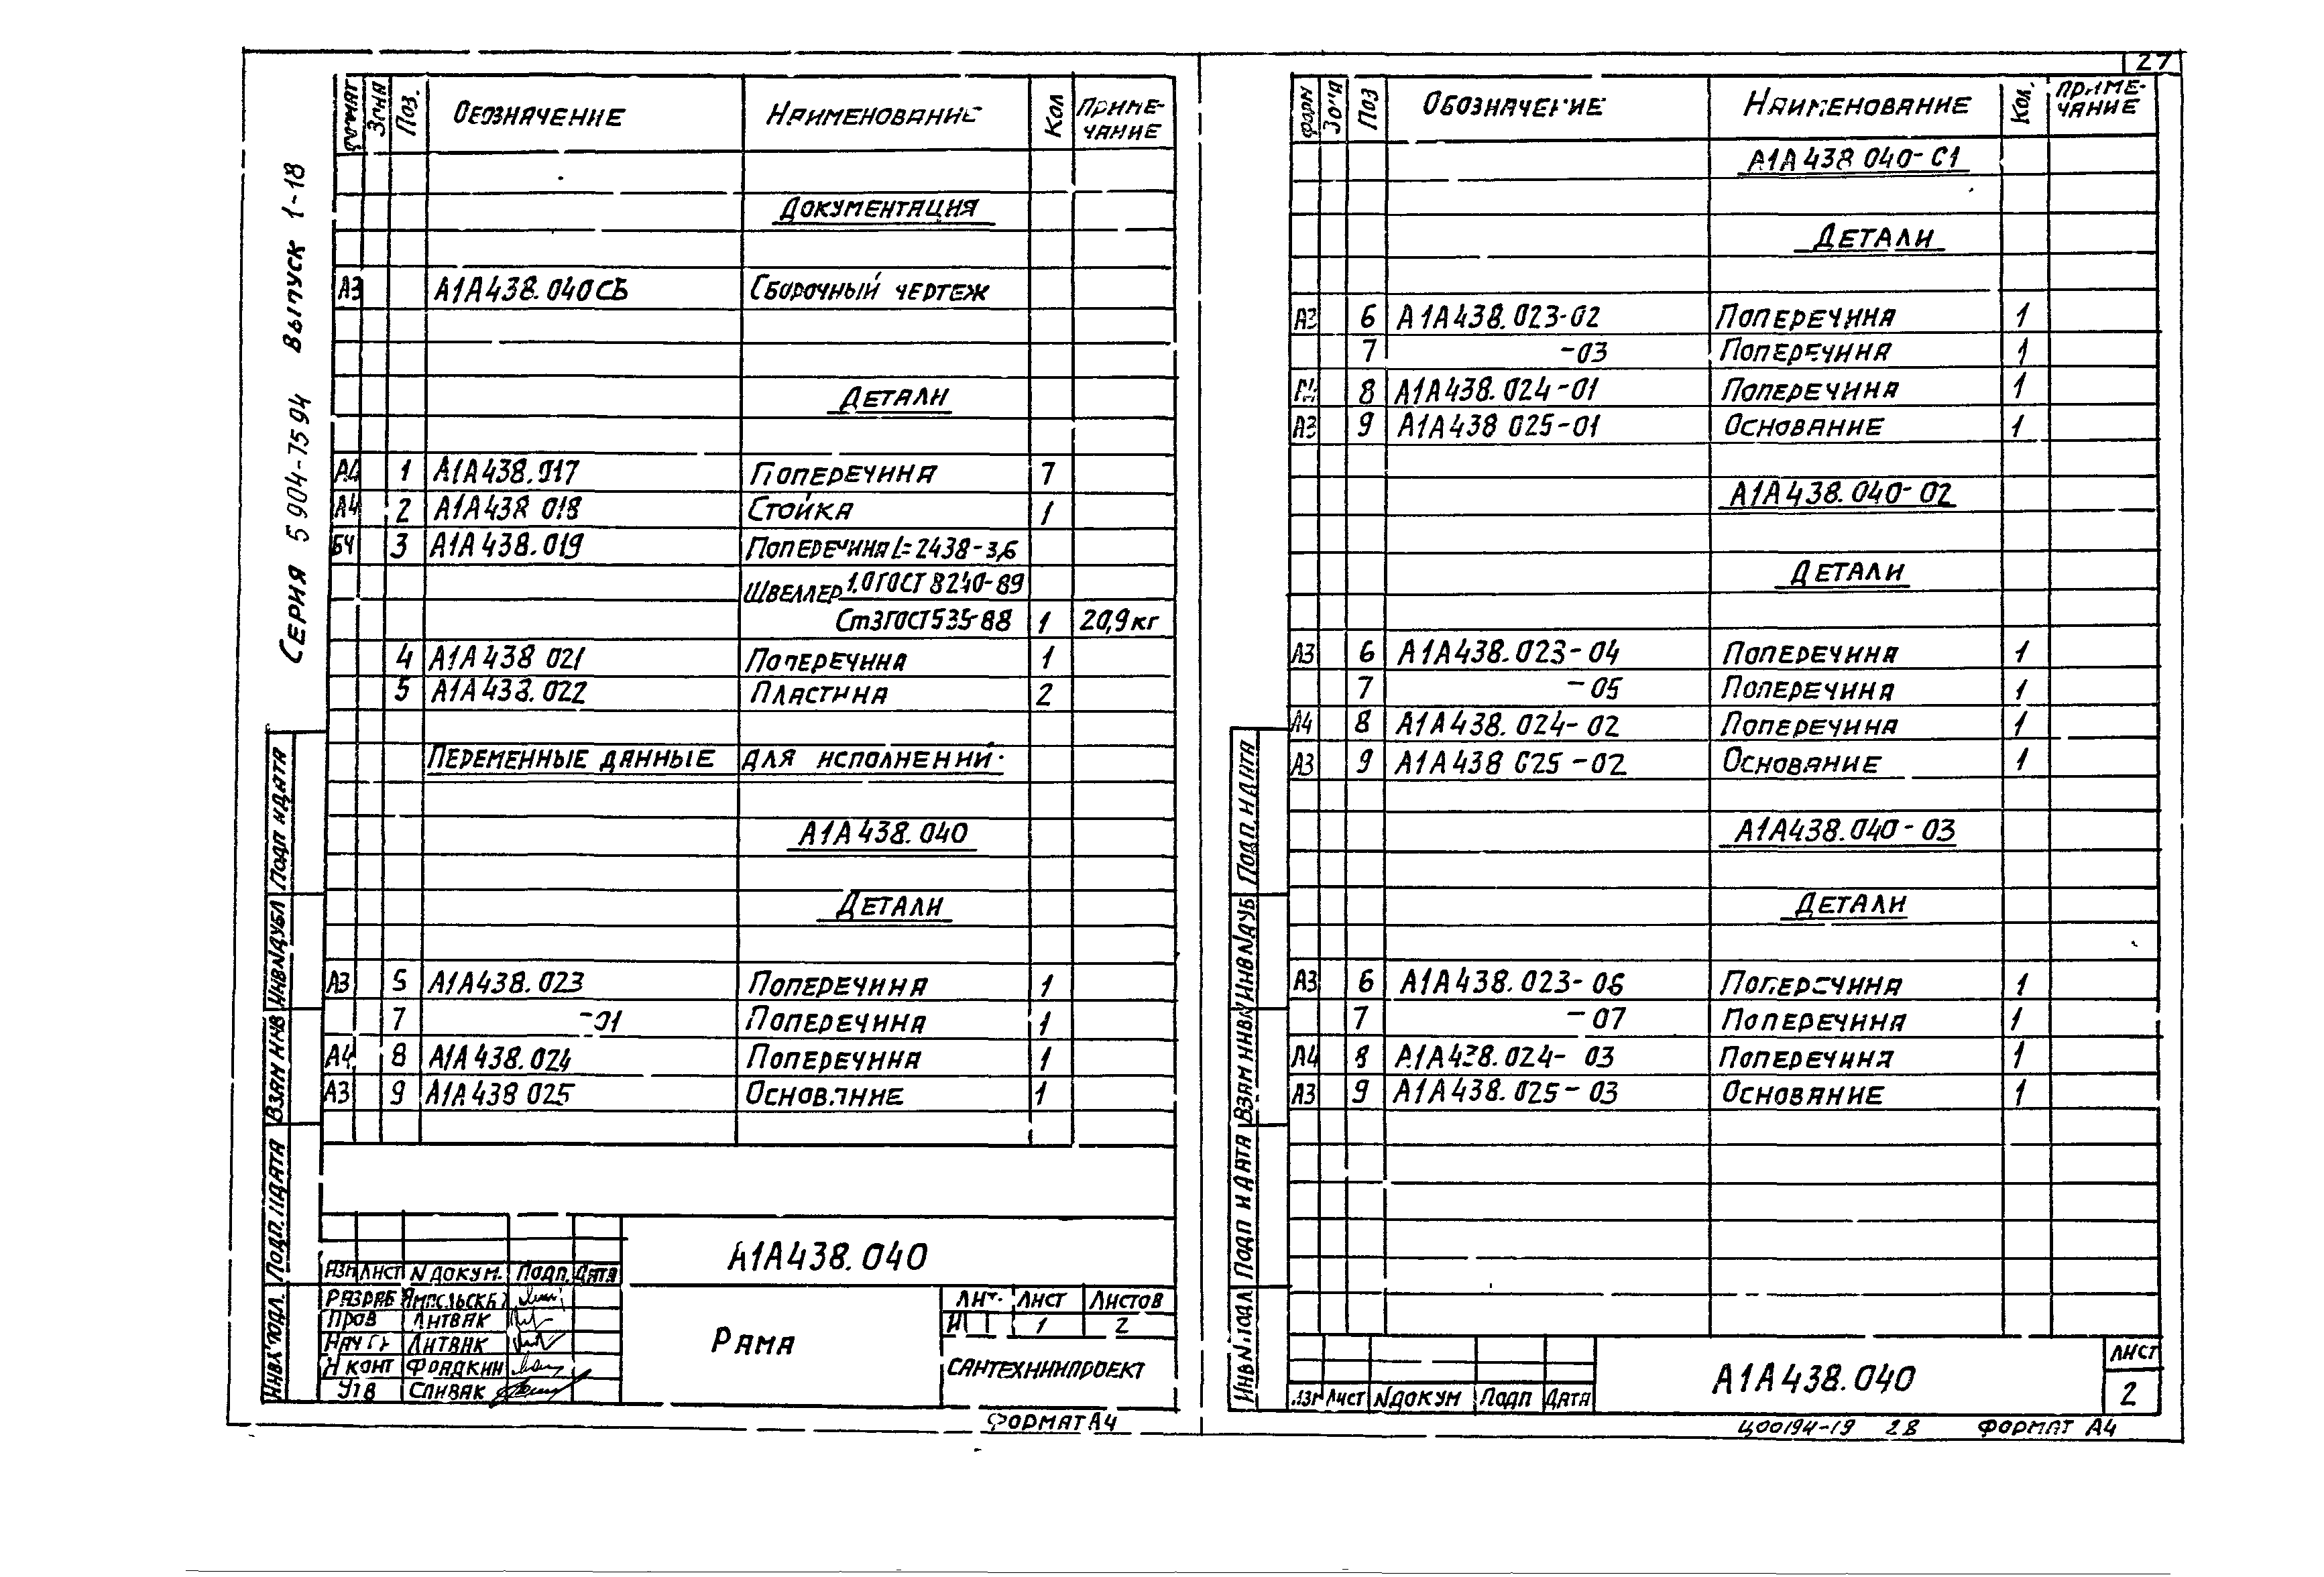 27
Серия 5904-7594 Выпуск 1-18
Формат Зона Поз. Обозначение Наименование Кол Примечание
Документация
А3 А1А438.040СБ Сборочный чертеж
Детали
А4 1 А1А438.017 Поперечина 7
А4 2 А1А438 018 Стойка 1
БЧ 3 А1А438.019 Поперечина L=2438-3,6
Швеллер 10 ГОСТ 8240-89
Ст3 ГОСТ 535-88 1 20,9 кг
4 А1А438 021 Поперечина 1
5 А1А438.022 Пластина 2
Переменные данные для исполнений
А1А438.040
Детали
А3 5 А1А438.023 Поперечина 1
7 -01 Поперечина 1
А4 8 А1А438.024 Поперечина 1
А3 9 А1А438 025 Основание 1
Инв N подл. Подп. и дата Взам инв Инв N дубл Подп и дата
А1А438.040
Изм Лист N докум. Подп. Дата
Разраб
Пров Литвяк
Нач Литвяк
Н конт
Утв Спивак
Рама
Лит. Лист Листов
И 1 2
Сантехниипроект
Формат А4
Форм Зона Поз Обозначение Наименование Кол. Примечание
А1А438 040-01
Детали
А3 6 А1А438.023-02 Поперечина 1
7 -03 Поперечина 1
8 А1А438.024-01 Поперечина 1
А3 9 А1А438 025-01 Основание 1
А1А438.040-02
Детали
А3 6 А1А438.023-04 Поперечина 1
7 -05 Поперечина 1
А4 8 А1А438.024-02 Поперечина 1
А3 9 А1А438 025-02 Основание 1
А1А438.040-03
Детали
А3 6 А1А438.023-06 Поперечина 1
7 -07 Поперечина 1
А4 8 А1А438.024-03 Поперечина 1
А3 9 А1А438.025-03 Основание 1
Инв N подл Подп и дата Взам инв N Инв N дуб Подп. и дата
Изм Лист N докум Подп Дата
А1А438.040
Лист
2
Ц00194-19 28 Формат А4